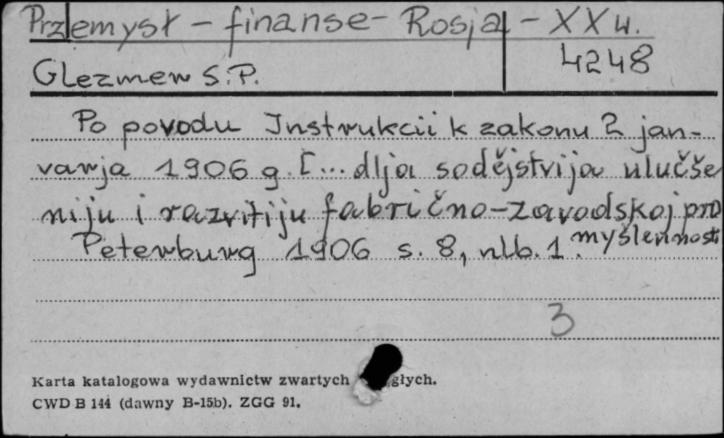 Przemysł – finanse – Rosja – XX w.
Glezmer S.P.
4248
Po povodu Instrukcii k zakonu 2 jan-
varja 1906 g. [... dlja sodějstvija ulučše
niju i razvitiju fabrično-zavodskoj pro
myšlennosti
Peterburg 1906 s. 8, nlb. 1.
3
Karta katalogowa wydawnictw zwartych głych.
CWD B 144 (dawny B-15b). ZGG 91.